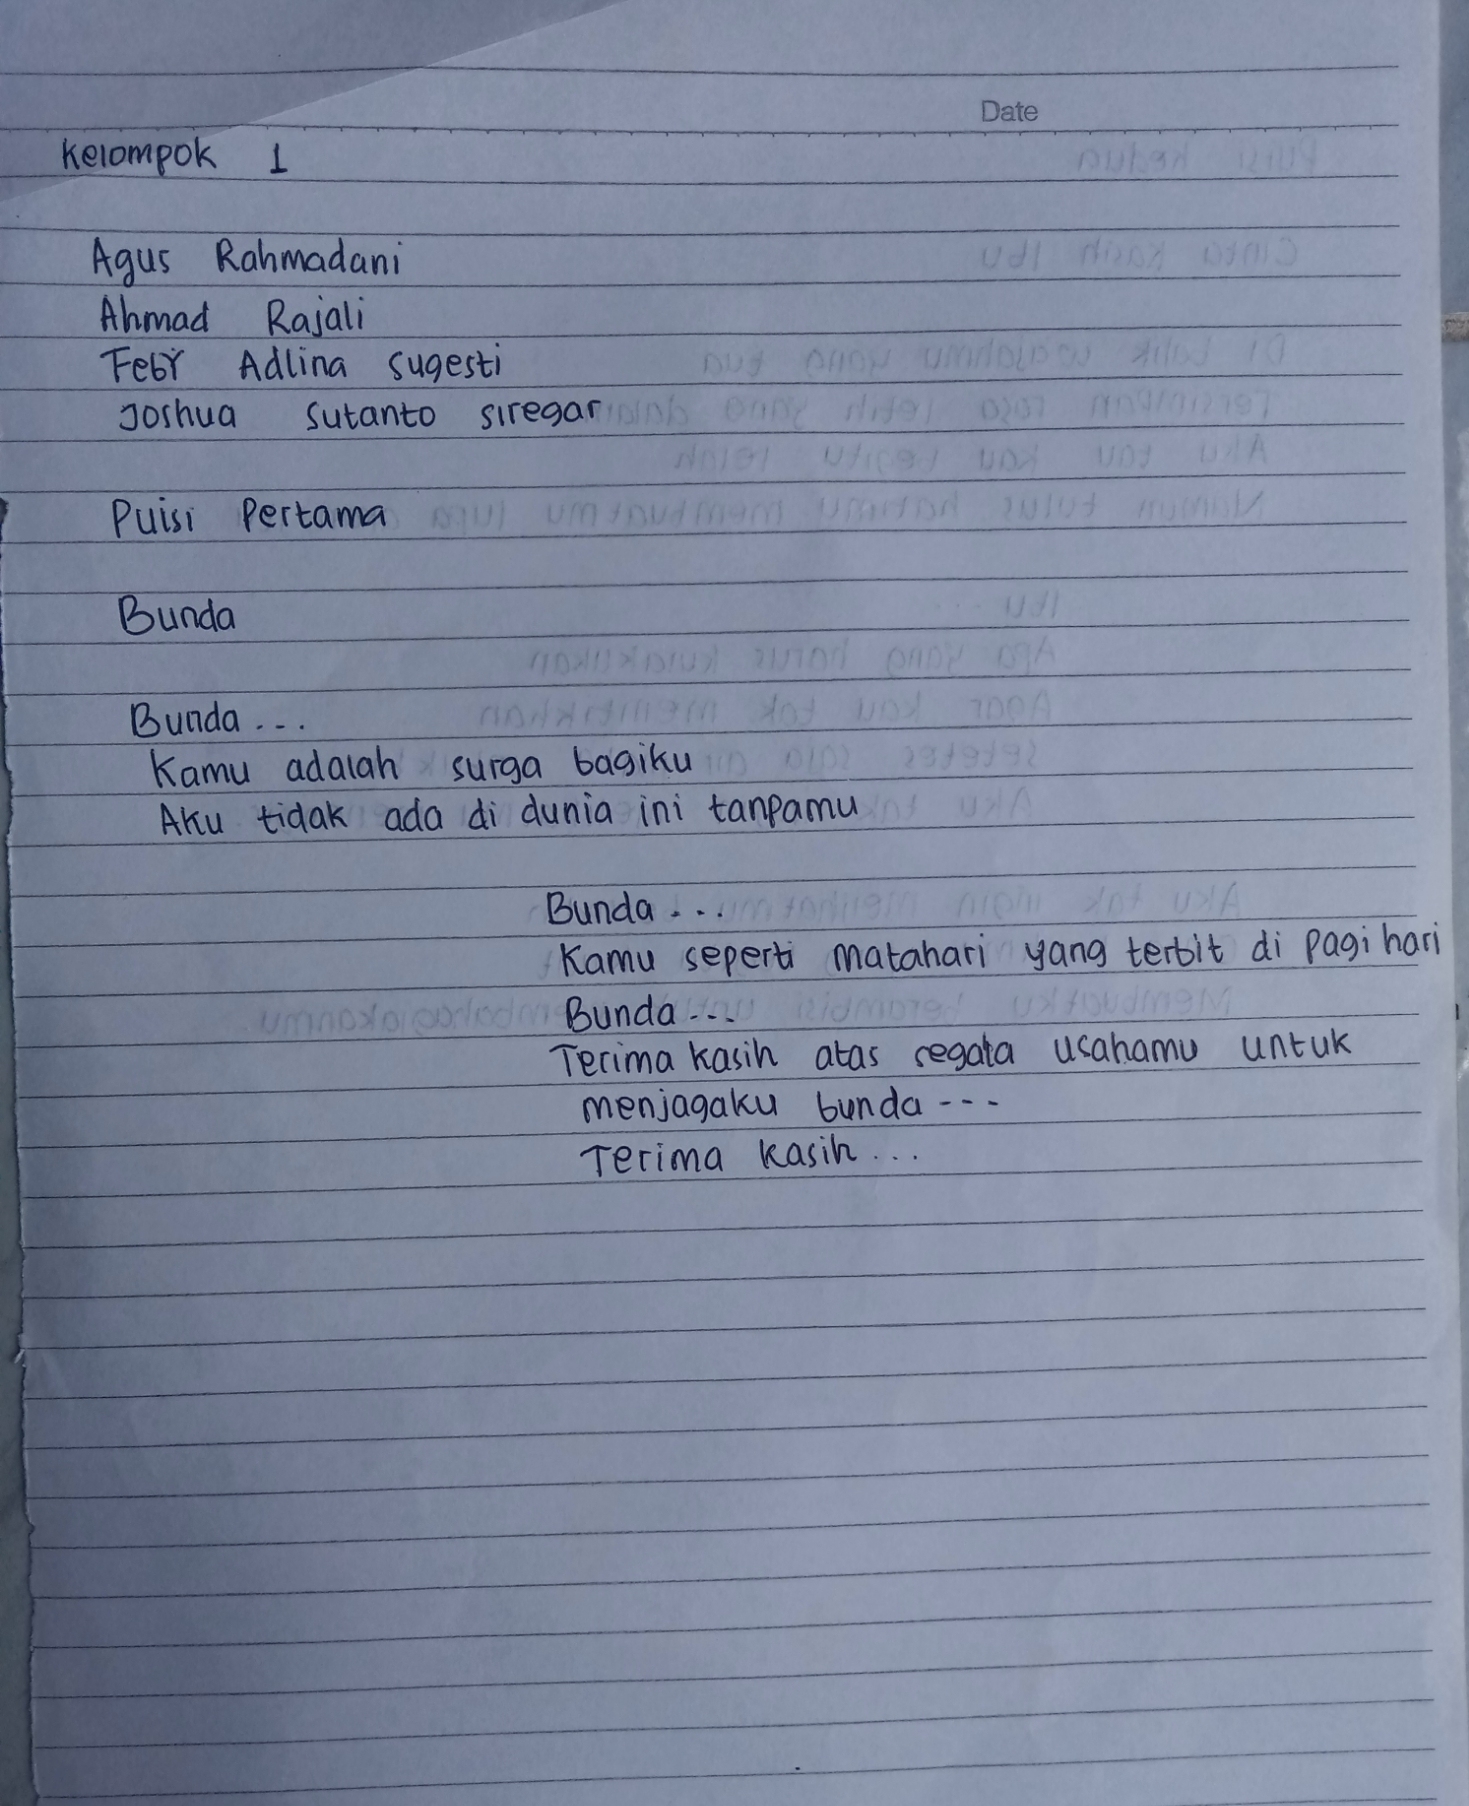 Date
Kelompok 1
Agus Rahmadani
Ahmad Rajali
Febr Adlina Sugesti
Joshua Sutanto Siregar
Puisi Pertama
Bunda
Bunda...
Kamu adalah surga bagiku
Aku tidak ada di dunia ini tanpamu
Bunda...
Kamu seperti matahari yang terbit di pagi hari
Bunda...
Terima kasih atas segala usahamu untuk
menjagaku bunda---
Terima kasih...